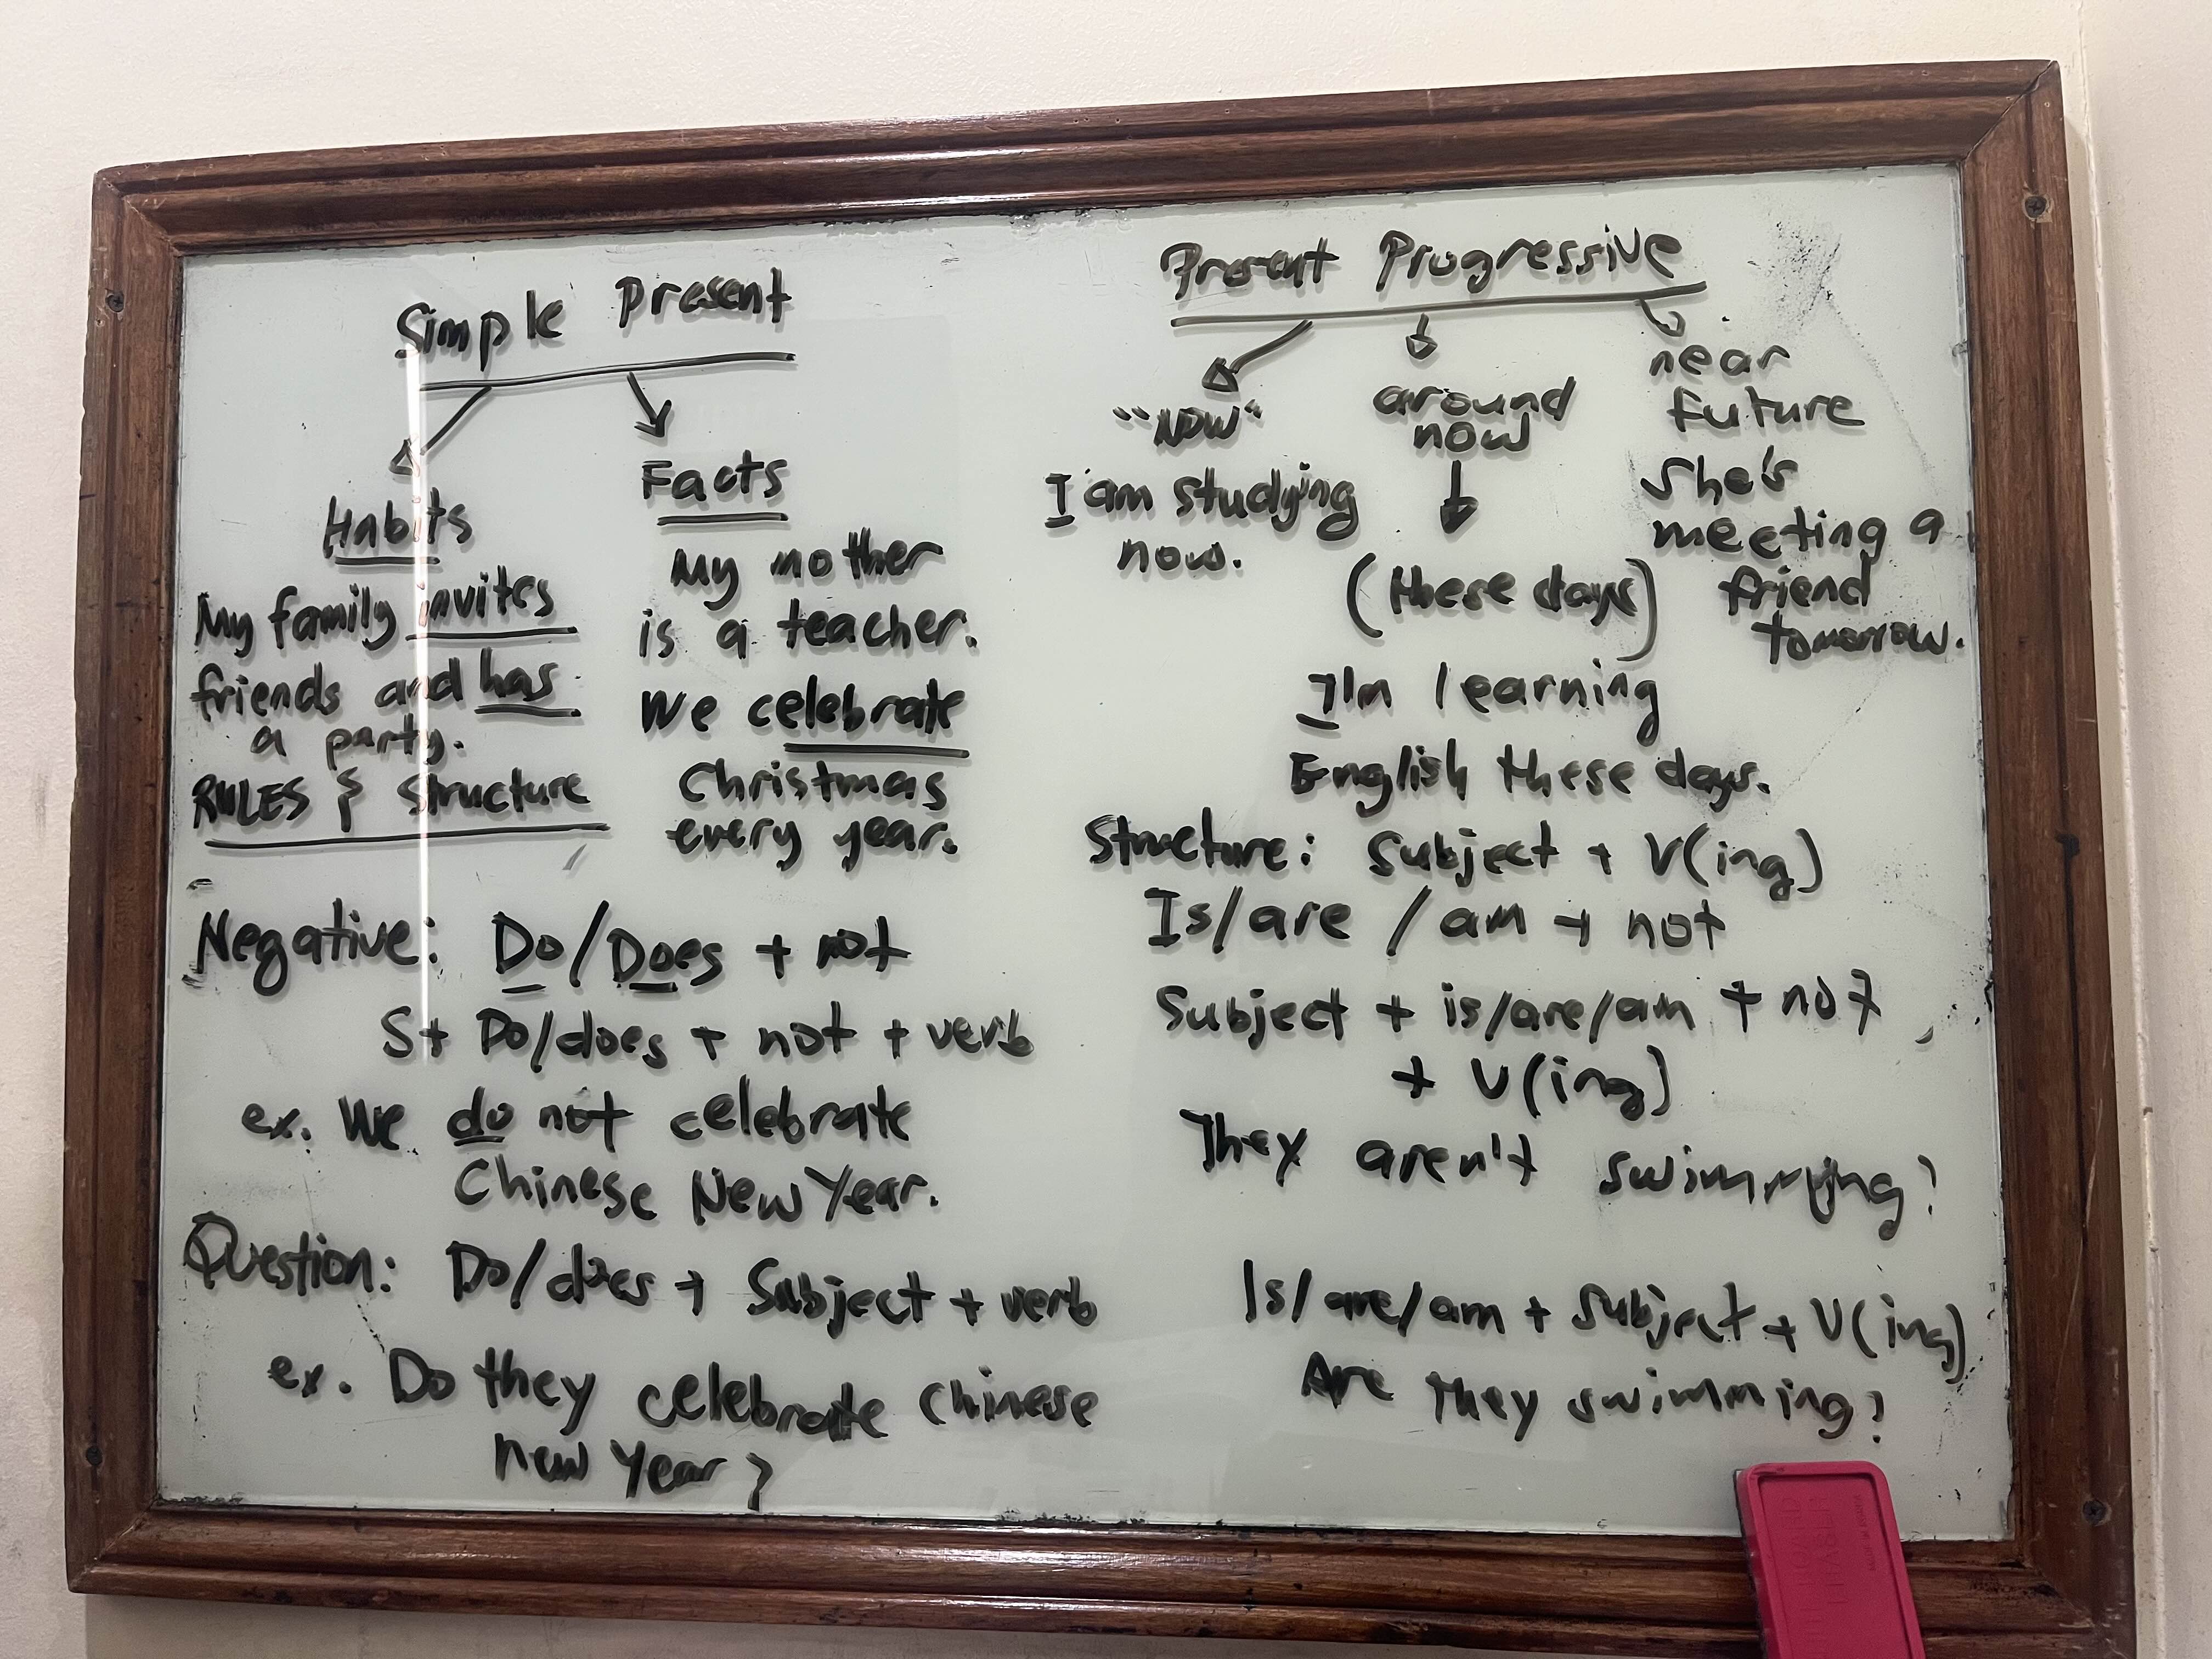 Simple Present
Habits
My family invites
friends and has
a party.
Facts
My mother
is a teacher.
We celebrate
Christmas
every year.
RULES & Structure
Negative: Do/Does + not
S+ Do/does + not + verb
ex. We do not celebrate
Chinese New Year.
Question: Do/does + Subject + verb
ex. Do they celebrate Chinese
New Year?
Present Progressive
"Now"
I am studying
now.
around
now
(these days)
I'm learning
English these days.
near
future
She's
meeting a
friend
tomorrow.
Structure: Subject + V(ing)
Is/are/am + not
Subject + is/are/am + not
+ V(ing)
They aren't swimming?
Is/are/am + subject + V(ing)
Are they swimming?